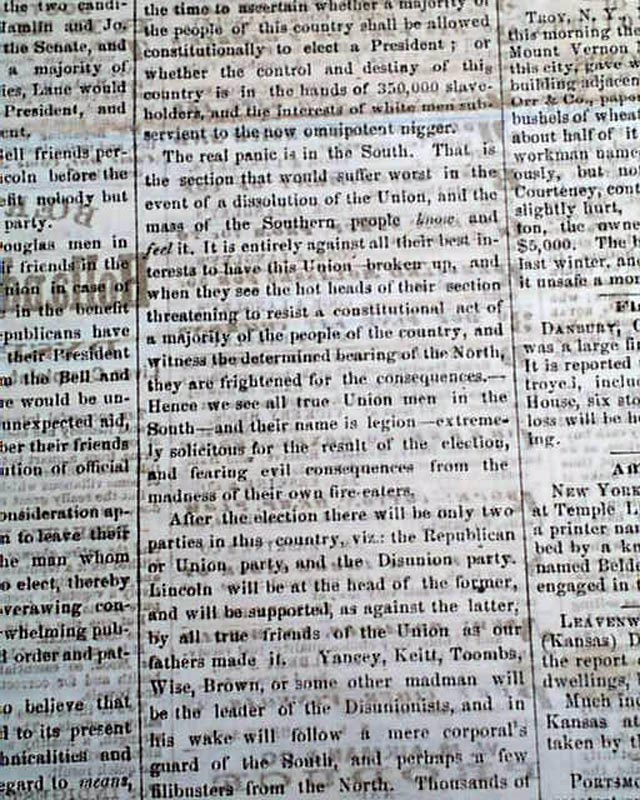 the two candi-
Hamlin and Jo.
the Senate, and
a majority of
ies, Lane would
President, and
ent.
Bell friends per-
coln before the
efit nobody but
party.
Douglas men in
ir friends in the
Union in case of
in the benefit
publicans have
their President
m the Bell and
se would be un-
unexpected aid,
ber their friends
ution of official
onsideration ap-
n to leave their
he man whom
o elect, thereby
verawing con-
whelming pub-
d order and pat-
o believe that
d to its present
hnicalities and
egard to means,
the time to ascertain whether a majority of
the people of this country shall be allowed
constitutionally to elect a President; or
whether the control and destiny of this
country is in the hands of 350,000 slave-
holders, and the interests of white men sub-
servient to the now omnipotent nigger.
The real panic is in the South. That is
the section that would suffer worst in the
event of a dissolution of the Union, and the
mass of the Southern people know and
feel it. It is entirely against all their best in-
terests to have this Union broken up, and
when they see the hot heads of their section
threatening to resist a constitutional act of
a majority of the people of the country, and
witness the determined bearing of the North,
they are frightened for the consequences.—
Hence we see all true Union men in the
South—and their name is legion—extreme-
ly solicitous for the result of the election,
and fearing evil consequences from the
madness of their own fire-eaters.
After the election there will be only two
parties in this country, viz.: the Republican
or Union party, and the Disunion party.
Lincoln will be at the head of the former,
and will be supported, as against the latter,
by all true friends of the Union as our
fathers made it. Yancey, Keitt, Toombs,
Wise, Brown, or some other madman will
be the leader of the Disunionists, and in
his wake will follow a mere corporal's
guard of the South, and perhaps a few
filibusters from the North. Thousands of
TROY, N. Y.,
this morning the
Mount Vernon
this city, gave w
building adjacen
Orr & Co., pape
bushels of wheat
about half of it
workman name
ously, but no
Courteney, con
slightly hurt,
ton, the owne
$5,000. The b
last winter, an
it unsafe a mo
FI
DANBURY, C
was a large fir
It is reported
troyed, inclu
House, six sto
loss will be h
ing.
AR
NEW YORK
at Temple L
a printer na
bed by a kn
named Belde
engaged in
LEAVENW
(Kansas) D
the report
dwellings, b
Much in
Kansas a
taken by t
PORTSMO